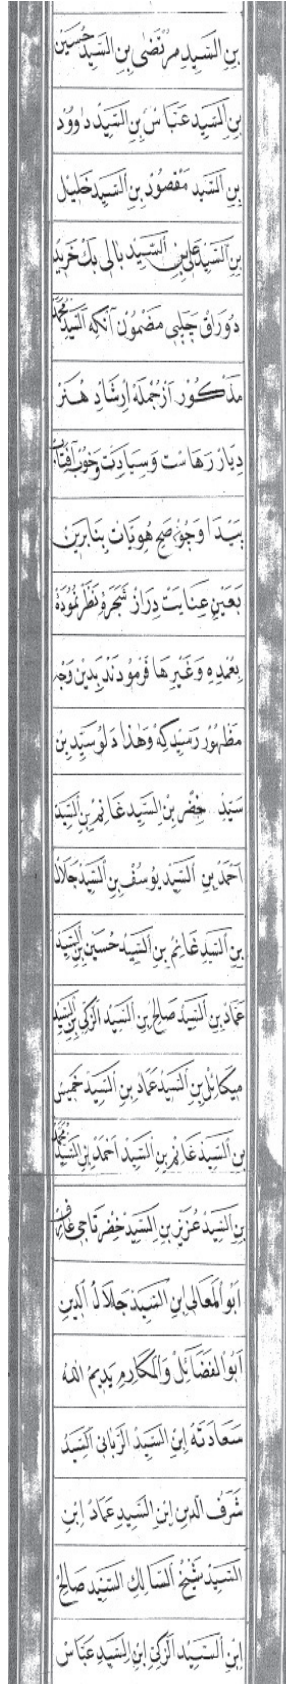 بن السيد مرتضى بن السيد حسين
بن السيد عباس بن السيد داوود
بن السيد مقصود بن السيد خليل
بن السيد على بن السيد بالى بك
دوراق چلبى مضمون آنكه السيد محمد
مذكور از جمله ارشاد هنر
ديار رهاست و سيادت
پيدا وجوه صح هويات بنابرين
بعين عنايت دراز شجره نظر نموده
بعمده و غيرها فرمودند بدين وجه
مظهور رسيد كه وهذا سيد بن
سيد خضر بن السيد غانم بن السيد
احمد بن السيد يوسف بن السيد جلال
بن السيد غانم بن السيد حسين بن السيد
عماد بن السيد صالح بن السيد الزكى بن السيد
ميكائل بن السيد عماد بن السيد خميس
بن السيد غانم بن السيد احمد بن السيد محمد
بن السيد عزيز بن السيد خضر تاجى
ابو المعالى ابن السيد جلال الدين
ابو الفضائل والمكارم يديم الله
سعادته ابن السيد الربانى السيد
شرف الدين ابن السيد عماد ابن
السيد شيخ السالك السيد صالح
ابن السيد الزكى ابن السيد عباس